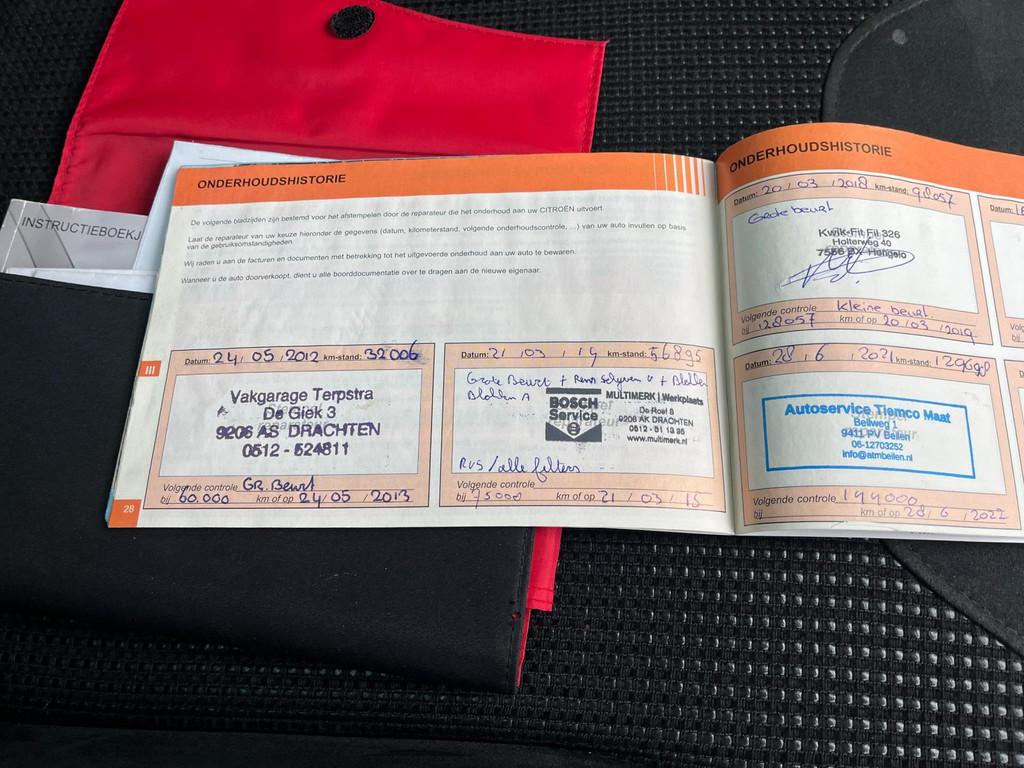 INSTRUCTIEBOEKJ
ONDERHOUDSHISTORIE
De volgende bladzijden zijn bestemd voor het afstempelen door de reparateur die het onderhoud aan uw CITROËN uitvoert.
Laat de reparateur van uw keuze hieronder de gegevens (datum, kilometerstand, volgende onderhoudscontrole, ...) van uw auto invullen op basis
van de gebruiksomstandigheden.
Wij raden u aan de facturen en documenten met betrekking tot het uitgevoerde onderhoud aan uw auto te bewaren.
Wanneer u de auto doorverkoopt, dient u alle boorddocumentatie over te dragen aan de nieuwe eigenaar.
III
Datum: 24/05/2012 km-stand: 32006
Vakgarage Terpstra
De Giek 3
9206 AS DRACHTEN
0512 - 524811
Volgende controle GR. Beurt
bij 60.000 km of op 24/05/2013
28
Datum: 21/03/14 km-stand: 56895
Grote Beurt + Rem Schyven V + Blokken
Blokken A
BOSCH
Service
MULTIMERK | Werkplaats
De Roef 8
9206 AK DRACHTEN
www.multimerk.nl
RVS / alle filters
Volgende controle
bij 75000 km of op 21/03/15
ONDERHOUDSHISTORIE
Datum: 20/03/2018 km-stand: 98057
Grote beurt
Kwik-Fit Fil.326
Holterweg 40
7556 BX Hengelo
Volgende controle kleine beurt.
bij 128057 km of op 20/03/2019
Datum: 28/6/2021 km-stand: 129698
Autoservice Tiemco Maat
Beilweg 1
9411 PV Beilen
06-12703252
info@atmbeilen.nl
Volgende controle 144000
bij km of op 28/6/2022
Datum: